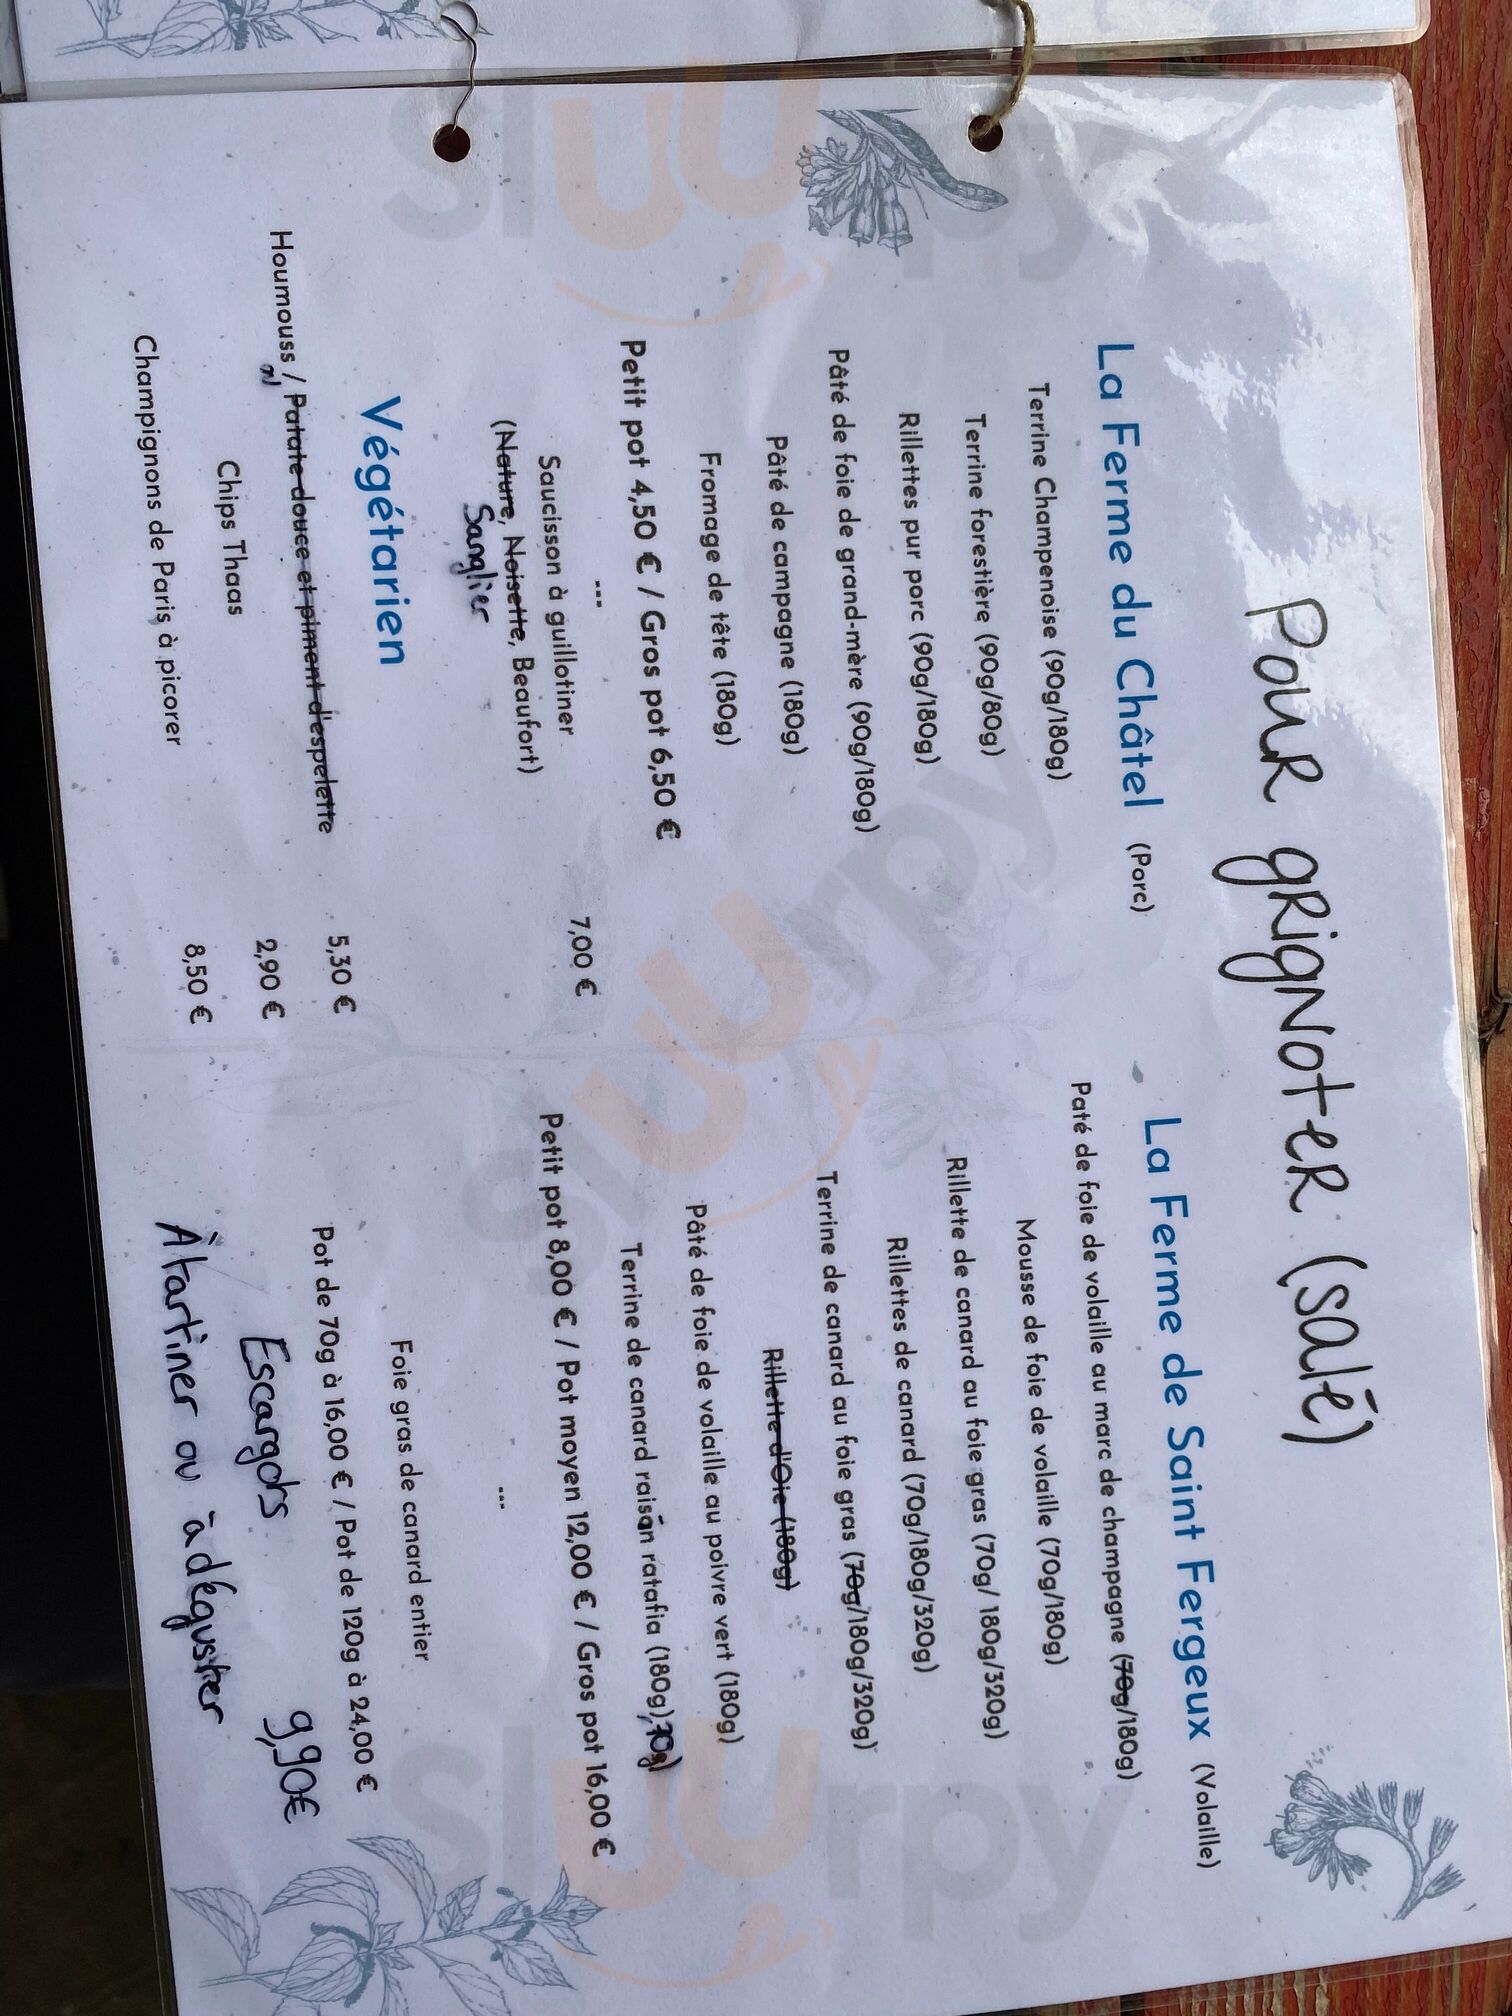 Pour grignoter (salé)
La Ferme du Châtel (Porc)
Terrine Champenoise (90g/180g)
Terrine forestière (90g/80g)
Rillettes pur porc (90g/180g)
Pâté de foie de grand-mère (90g/180g)
Pâté de campagne (180g)
Fromage de tête (180g)
Petit pot 4,50 € / Gros pot 6,50 €
---
Saucisson à guillotiner 7,00 €
(Nature, Noisette, Beaufort)
Sanglier
Végétarien
Houmouss / Patate douce et piment d'espelette 5,30 €
Chips Thaas 2,90 €
Champignons de Paris à picorer 8,50 €
La Ferme de Saint Fergeux (Volaille)
Paté de foie de volaille au marc de champagne (70g/180g)
Mousse de foie de volaille (70g/180g)
Rillette de canard au foie gras (70g/ 180g/320g)
Rillettes de canard (70g/180g/320g)
Terrine de canard au foie gras (70g/180g/320g)
Rillette d'Oie (180g)
Pâté de foie de volaille au poivre vert (180g)
Terrine de canard raisin ratafia (180g),70g)
Petit pot 8,00 € / Pot moyen 12,00 € / Gros pot 16,00 €
---
Foie gras de canard entier
Pot de 70g à 16,00 € / Pot de 120g à 24,00 €
Escargots 9,90€
À tartiner ou à déguster
sluurpy
sluurpy
sluurpy